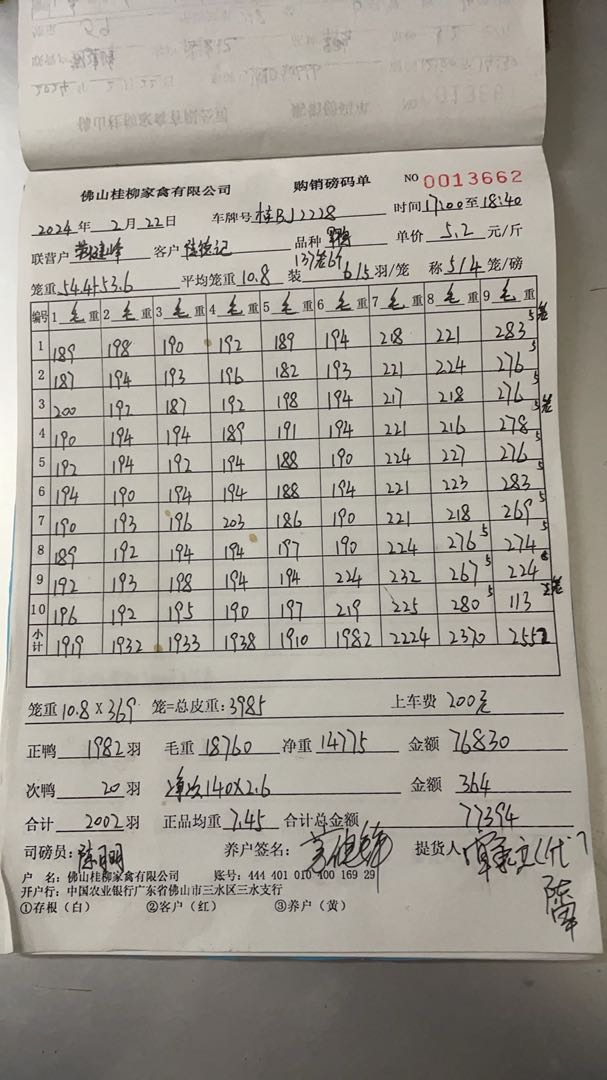 佛山桂柳家禽有限公司 购销磅码单 NO 0013662
2024年2月22日 车牌号 桂BJ2228 时间17:00至18:40
联营户 客户 品种 单价 5.2 元/斤
137笼6只
笼重 544÷53.6 平均笼重 10.8 装 6.15 羽/笼 称 5/4 笼/磅
编号 1 毛重 2 毛重 3 毛重 4 毛重 5 毛重 6 毛重 7 毛重 8 毛重 9 毛重
1 189 198 190 192 189 194 208 221 283 5笼
2 187 194 193 196 182 193 221 224 276 5
3 200 192 187 192 198 194 217 218 276 5
4 190 194 194 189 191 194 221 216 278 5笼
5 192 194 192 194 188 190 224 227 276 5
6 194 190 194 194 188 194 221 223 283 5
7 190 193 196 203 186 190 221 218 269 5
8 189 192 194 194 197 190 224 276 5 274 5
9 192 193 198 194 194 224 232 267 5 224
10 196 192 195 190 197 219 225 280 5 113
小计 1919 1932 1933 1938 1910 1982 2224 2370 2552
笼重 10.8 X 369 笼=总皮重: 3985 上车费 200元
正鸭 1982 羽 毛重 18760 净重 14775 金额 76830
次鸭 20 羽 净次140X2.6 金额 364
合计 2002 羽 正品均重 7.45 合计总金额 77394
司磅员: 养户签名: 提货人
户 名: 佛山桂柳家禽有限公司 账号: 444 401 010 400 169 29
开户行: 中国农业银行广东省佛山市三水区三水支行
①存根（白） ②客户（红） ③养户（黄）